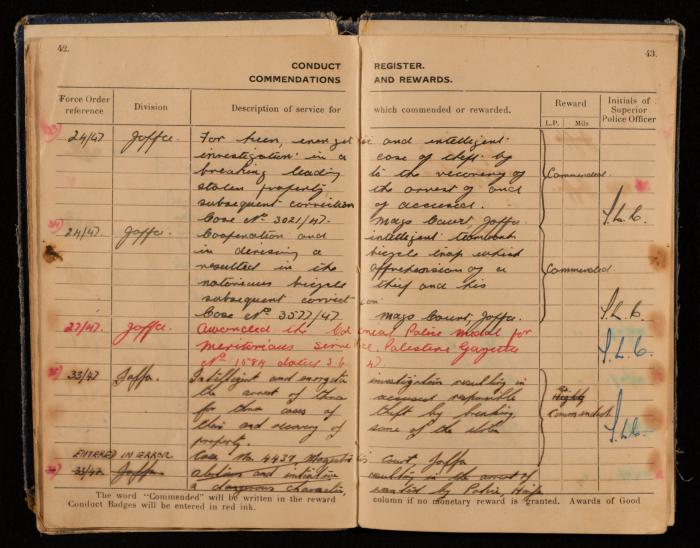 42.
43.
CONDUCT REGISTER.
COMMENDATIONS AND REWARDS.
Force Order reference
Division
Description of service for which commended or rewarded.
Reward
L.P. Mils
Initials of Superior Police Officer
24/47. Jaffa. For keen, energetic and intelligent
investigation in a case of theft by
breaking leading to the recovery of
stolen property the arrest of and
subsequent conviction of accused.
Case No 3021/47. Mags Court, Jaffa.
Commended
S.L.C.
24/47. Jaffa. Cooperation and intelligent teamwork
in devising a bicycle trap which
resulted in the apprehension of a
notorious bicycle thief and his
subsequent conviction
Case No 3577/47. Mags Court, Jaffa.
Commended
S.L.C.
27/47. Jaffa. Awarded the Colonial Police Medal for
Meritorious Service. Palestine Gazette
No 1584 dated 3 6 47
S.L.C.
33/47 Jaffa. Intelligent and energetic investigation resulting in
the arrest of three accused responsible
for three cases of theft by breaking
and recovery of some of the stolen
property.
Case No. 4439, Magistrates Court, Jaffa
Highly
Commended
S.L.C.
ENTERED IN ERROR
33/47 Jaffa alertness and initiative resulting in the arrest of
a dangerous character, wanted by Police, Haifa
The word "Commended" will be written in the reward column if no monetary reward is granted. Awards of Good
Conduct Badges will be entered in red ink.